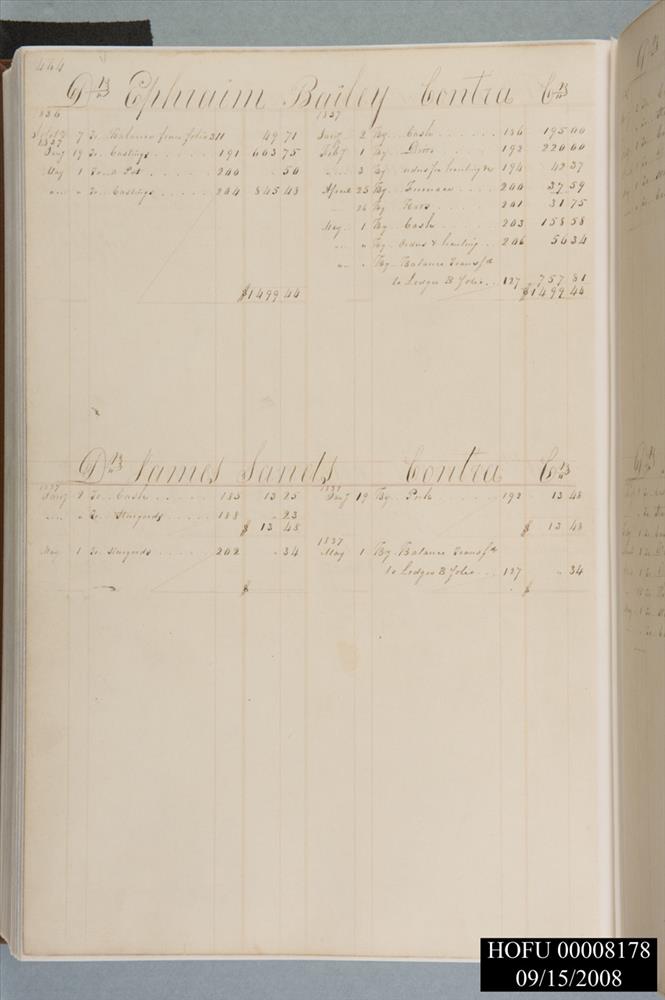 444
Dr Ephraim Bailey Contra Cr
1836
Sept 7 To Balance from folio 311 49 71
1837
Jany 19 To Castings 191 603 75
May 1 To Pot 200 50
" " To Castings 204 845 48
$1499 44
1837
Jany 2 By Cash 186 195 00
Feby 1 By 192 220 00
" 3 By orders for hauling & 194 42 37
April 25 By Furnace 200 37 59
26 By 201 31 75
May 1 By Cash 203 158 58
" " By Orders & hauling 206 56 34
" " By Balance Transfd
to Ledger B Folio 127 757 81
$1499 44
Dr James Sands Contra Cr
1837
Jany 2 To Cash 185 13 25
" To 188 23
$ 13 48
May 1 To 202 34
$
1837
Jany 19 By Pork 192 13 48
$ 13 48
1837
May 1 By Balance Transfd
to Ledger B Folio 127 34
$
HOFU 00008178
09/15/2008